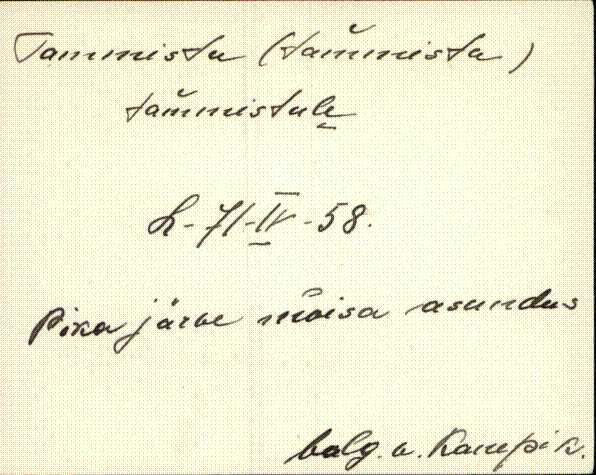 Tammistu (tam̆mistu)
tam̆mistule
L-71-IV-58.
Pikajärve mõisa asundus
balg. v. Kanepi k.